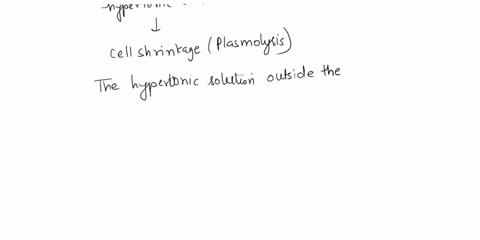 ↓
cell shrinkage (Plasmolysis)
The hypertonic solution outside the